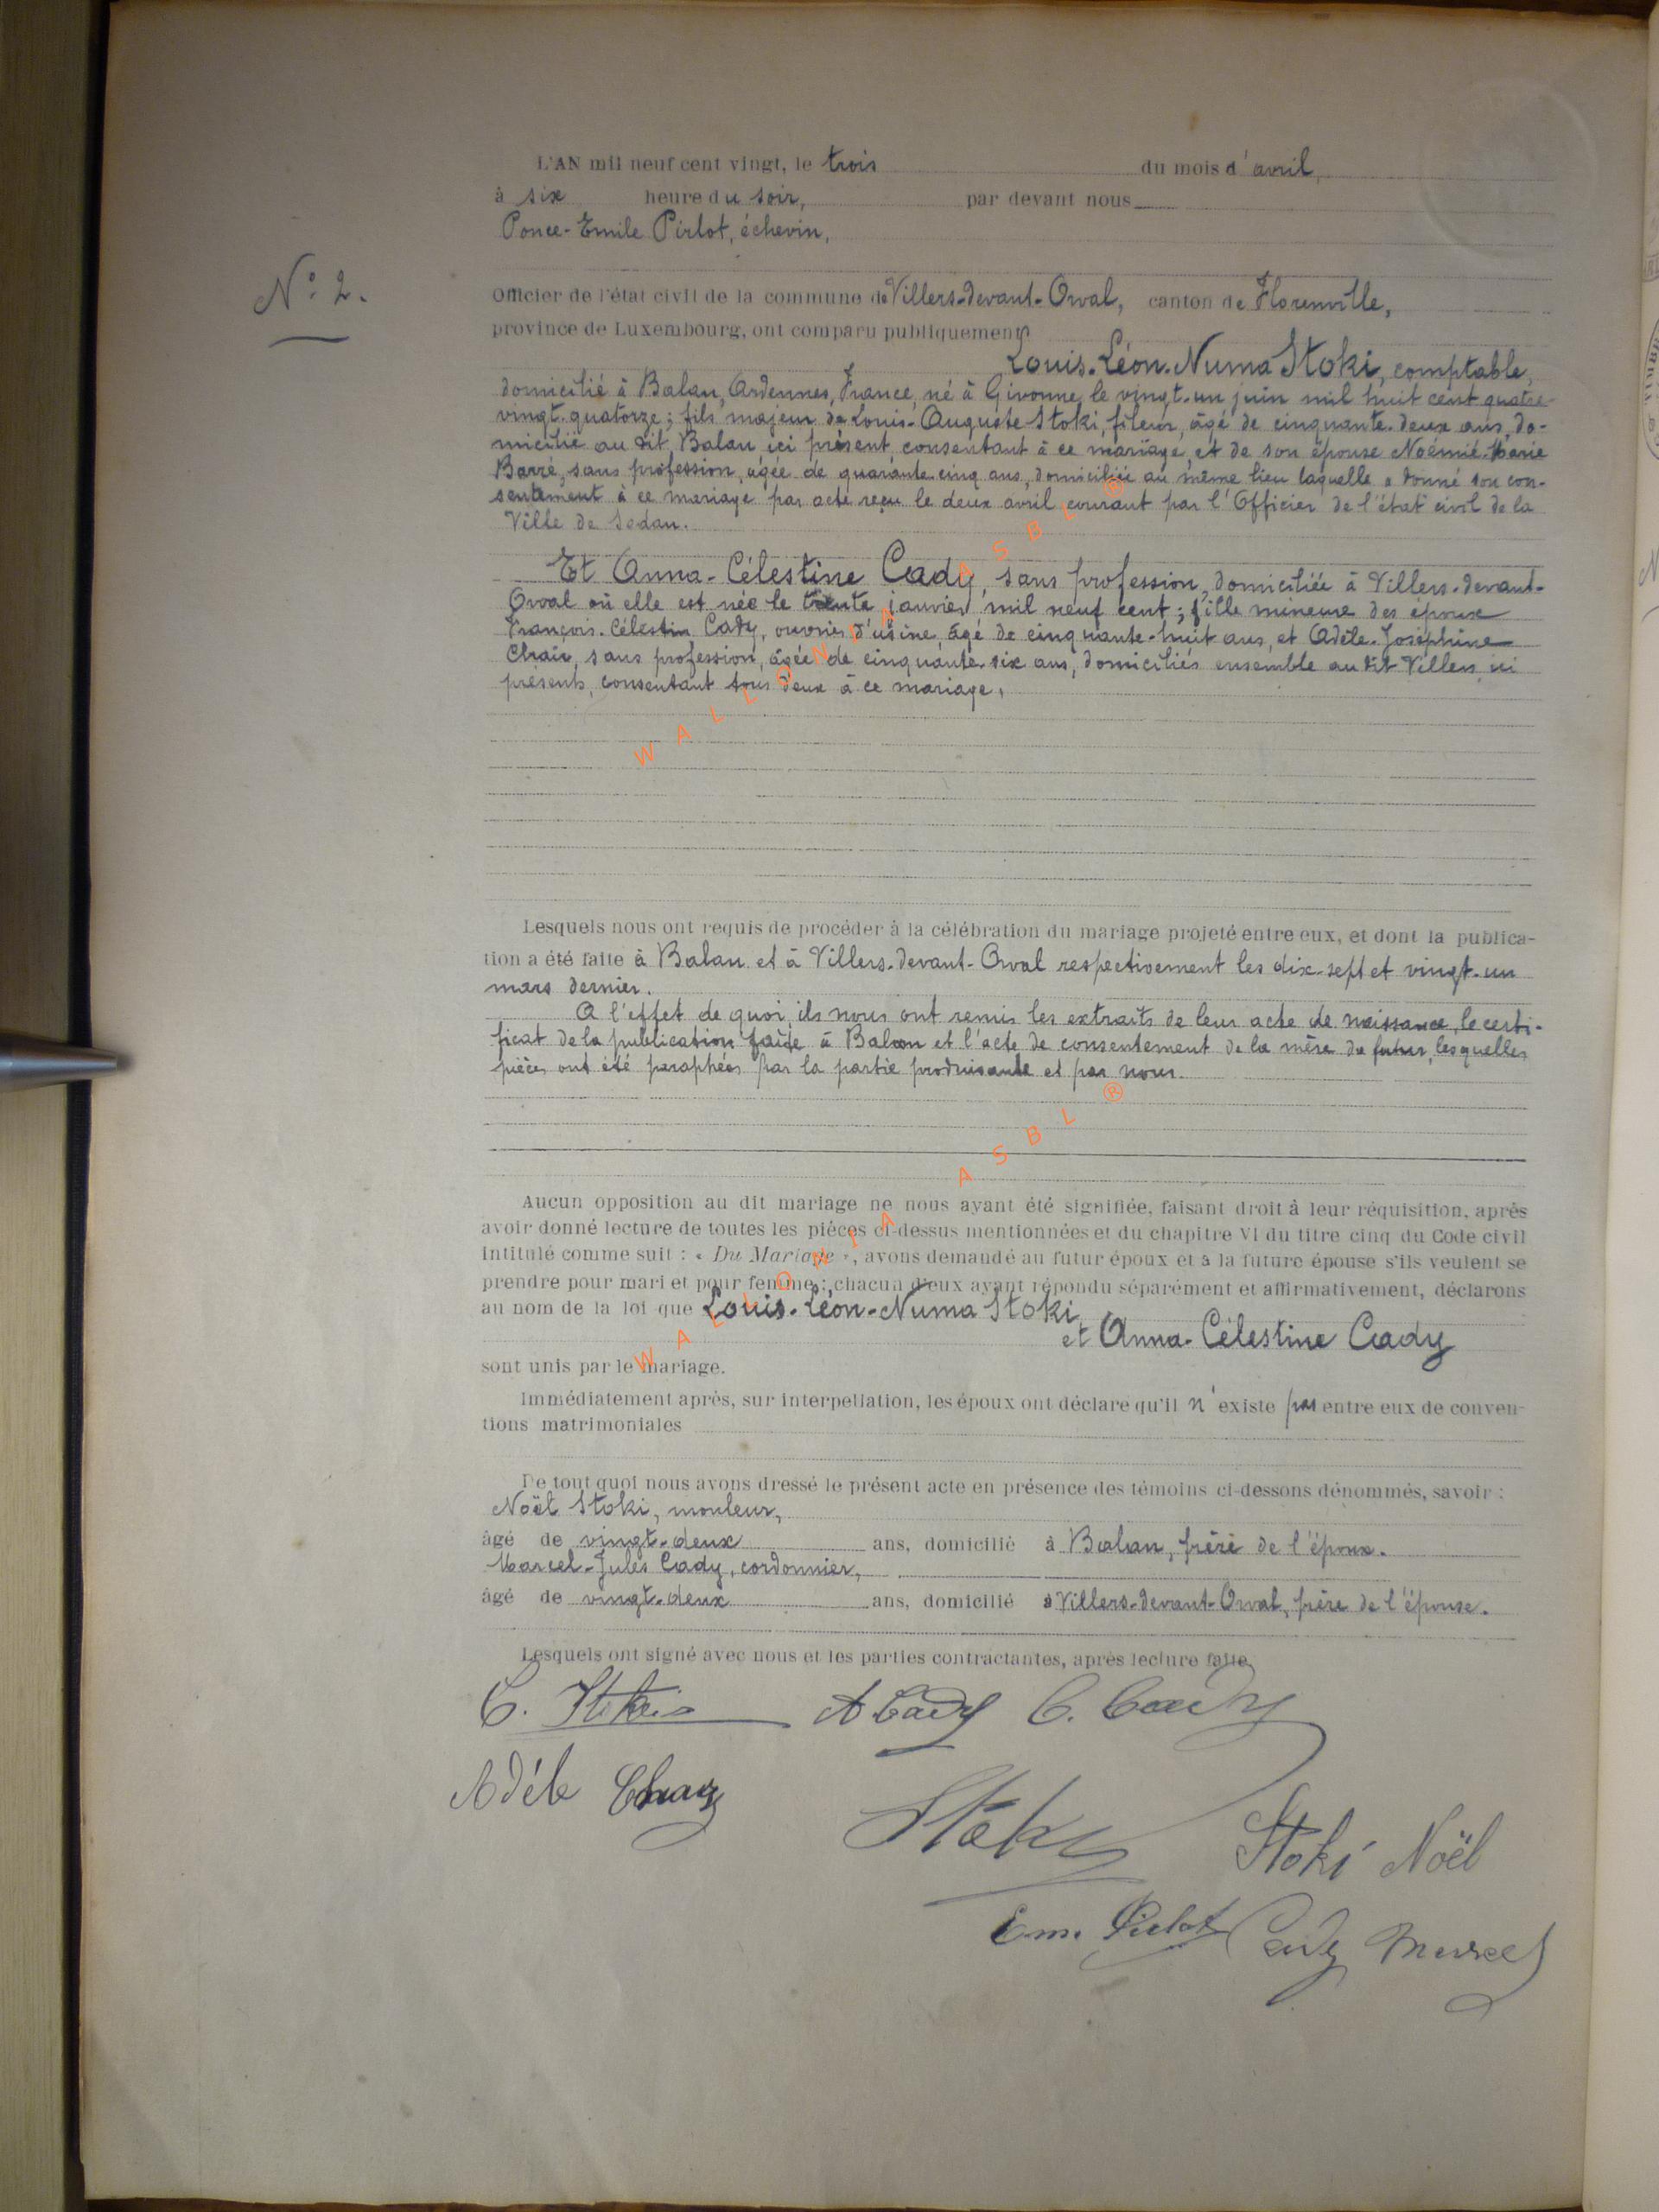 L'AN mil neuf cent vingt, le trois du mois d'avril,
à six heure du soir, par devant nous
Ponce-Emile Pirlot, échevin,
N° 2.
Officier de l'état civil de la commune de Villers-devant-Orval, canton de Florenville,
province de Luxembourg, ont comparu publiquement
Louis-Léon-Numa Stoki, comptable,
domicilié à Balan, Ardennes, France, né à Givonne le vingt-un juin mil huit cent quatre-
vingt-quatorze; fils majeur de Louis-Auguste Stoki, fileur, âgé de cinquante-deux ans, do-
micilié au dit Balan ici présent, consentant à ce mariage, et de son épouse Noémie-Marie
Barré, sans profession, âgée de quarante-cinq ans, domiciliée au même lieu laquelle a donné son con-
sentement à ce mariage par acte reçu le deux avril courant par l'Officier de l'état civil de la
Ville de Sedan.
Et Anna-Célestine Cady, sans profession, domiciliée à Villers-devant-
Orval où elle est née le trente janvier mil neuf cent; fille mineure des époux
François-Célestin Cady, ouvrier d'usine, âgé de cinquante-huit ans, et Adèle-Joséphine
Chaix, sans profession, âgée de cinquante-six ans, domiciliés ensemble au dit Villers, ici
présents, consentant tous deux à ce mariage.
Lesquels nous ont requis de procéder à la célébration du mariage projeté entre eux, et dont la publica-
tion a été faite à Balan et à Villers-devant-Orval respectivement les dix-sept et vingt-un
mars dernier.
A l'effet de quoi, ils nous ont remis les extraits de leur acte de naissance, le certi-
ficat de la publication faite à Balan et l'acte de consentement de la mère du futur, lesquelles
pièces ont été paraphées par la partie produisante et par nous.
Aucun opposition au dit mariage ne nous ayant été signifiée, faisant droit à leur réquisition, après
avoir donné lecture de toutes les pièces ci-dessus mentionnées et du chapitre VI du titre cinq du Code civil
intitulé comme suit : « Du Mariage », avons demandé au futur époux et à la future épouse s'ils veulent se
prendre pour mari et pour femme; chacun d'eux ayant répondu séparément et affirmativement, déclarons
au nom de la loi que Louis-Léon-Numa Stoki,
et Anna-Célestine Cady
sont unis par le mariage.
Immédiatement après, sur interpellation, les époux ont déclare qu'il n'existe pas entre eux de conven-
tions matrimoniales
De tout quoi nous avons dressé le présent acte en présence des témoins ci-dessons dénommés, savoir :
Noël Stoki, mouleur,
âgé de vingt-deux ans, domicilié à Balan, frère de l'époux.
Marcel-Jules Cady, cordonnier,
âgé de vingt-deux ans, domicilié à Villers-devant-Orval, frère de l'épouse.
Lesquels ont signé avec nous et les parties contractantes, après lecture faite.
A Cady C. Cady
Adèle
Stoki Stoki Noël
Em. Pirlot Cady Marcel
WALLONIA ASBL ®
WALLONIA ASBL ®